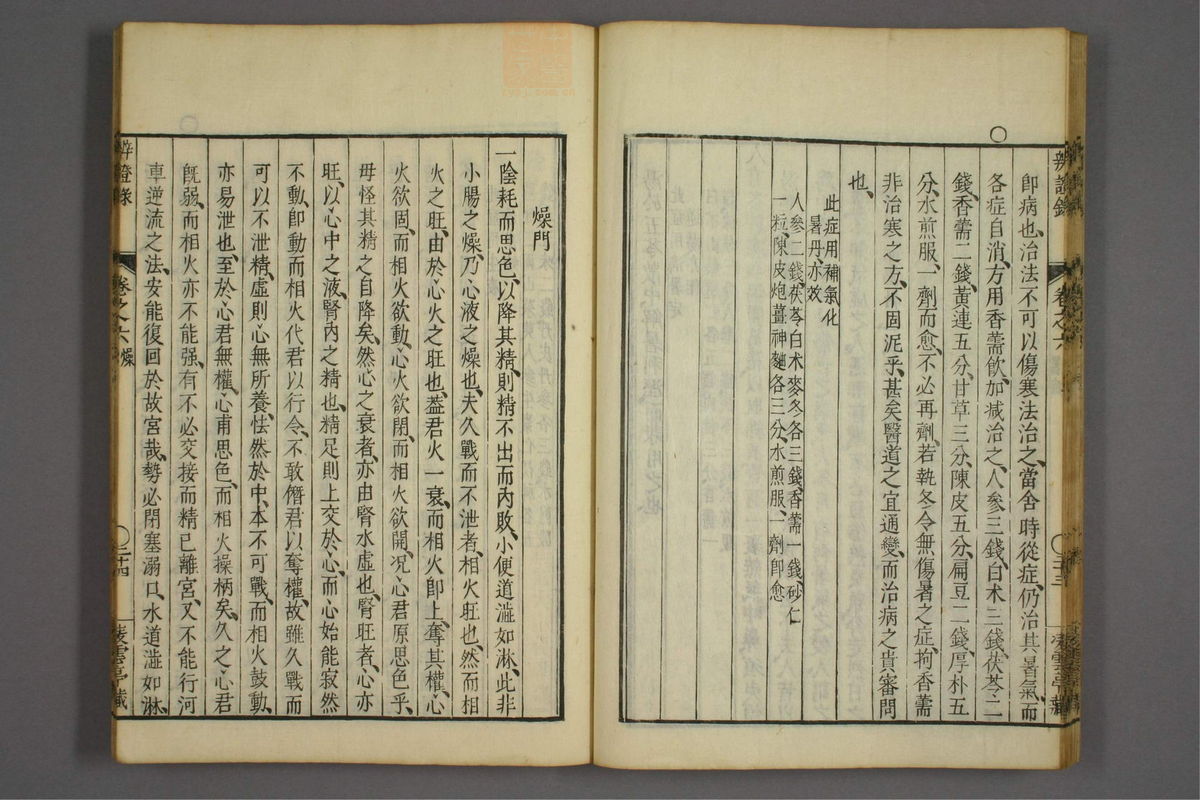 即病也、治法不可以傷寒法治之、當舍時從症、仍治其暑氣、而
各症自消、方用香薷飲、加减治之、人參三錢、白术三錢、茯苓二
錢、香薷二錢、黃連五分、甘草三分、陳皮五分、扁豆二錢、厚朴五
分、水煎服、一劑而愈、不必再劑、若執冬令無傷暑之症、拘香薷
非治寒之方、不固泥乎、甚矣醫道之宜通變、而治病之貴審問
也、
此症用補氣化
暑丹、亦效
人參二錢、茯苓白术麥冬各三錢、香薷一錢、砂仁
一粒、陳皮炮薑神麯各三分、水煎服、一劑卽愈
辨證錄
卷之六
三十三
凌雲亭藏
燥門
一陰耗而思色、以降其精、則精不出而內敗、小便道澁如淋、此非
小腸之燥、乃心液之燥也、夫久戰而不泄者、相火旺也、然而相
火之旺、由於心火之旺也、葢君火一衰、而相火卽上奪其權、心
火欲固、而相火欲動、心火欲閉、而相火欲開、况心君原思色乎、
毋怪其精之自降矣、然心之衰者、亦由腎水虛也、腎旺者、心亦
旺、以心中之液、腎內之精也、精足則上交於心、而心始能寂然
不動、卽動而相火代君以行令、不敢僭君以奪權、故雖久戰而
可以不泄精、虛則心無所養、怯然於中、本不可戰、而相火鼓動、
亦易泄也、至於心君無權、心甫思色、而相火操柄矣、久之心君
旣弱、而相火亦不能强、有不必交接而精已離宮、又不能行河
車逆流之法、安能復回於故宮哉、勢必閉塞溺口、水道澁如淋、
辨證錄
卷之六 燥
三十四
凌雲亭藏